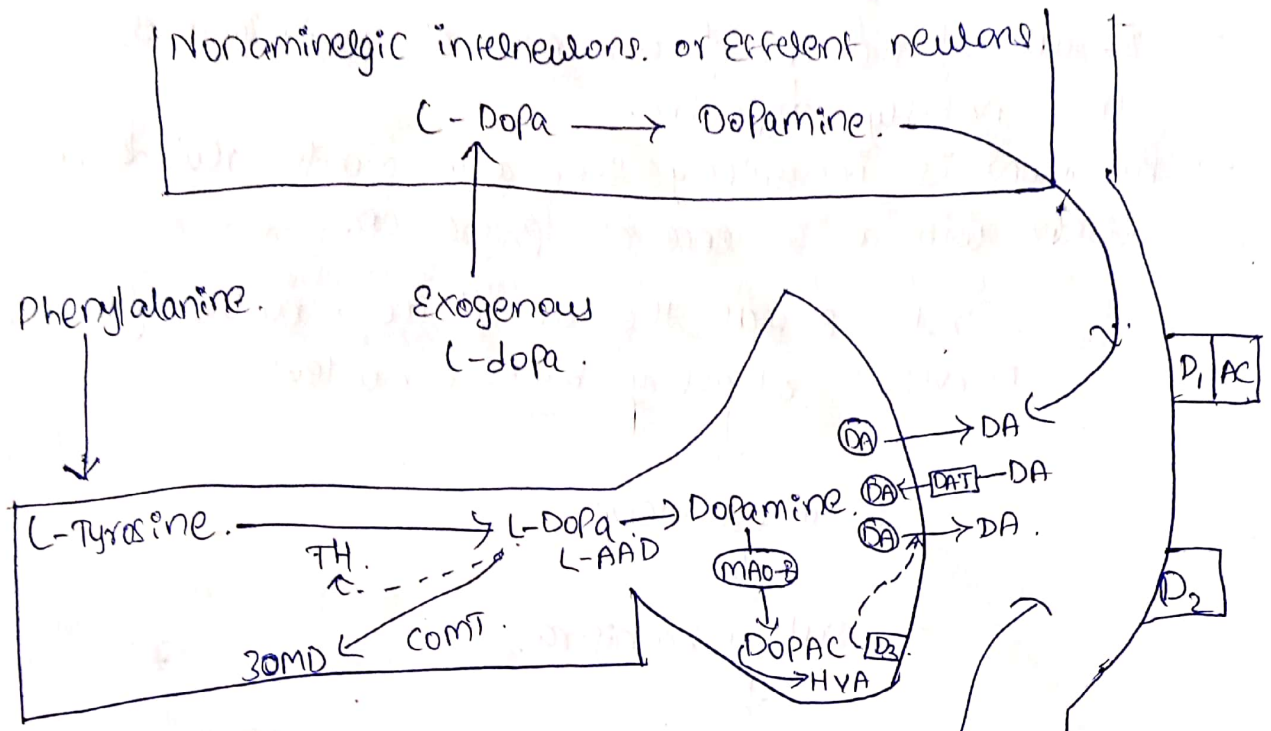 Nonaminelgic intelneulons. or Effelent neulons.
L-Dopa → Dopamine.
Phenylalanine.
Exogenous
L-dopa.
D1 AC
DA → DA
DA ← DAT — DA
L-Tyrosine. → L-Dopa → Dopamine.
DA → DA.
TH.
L-AAD
MAO-B
D2
COMT.
3OMD
DOPAC
D2
HVA